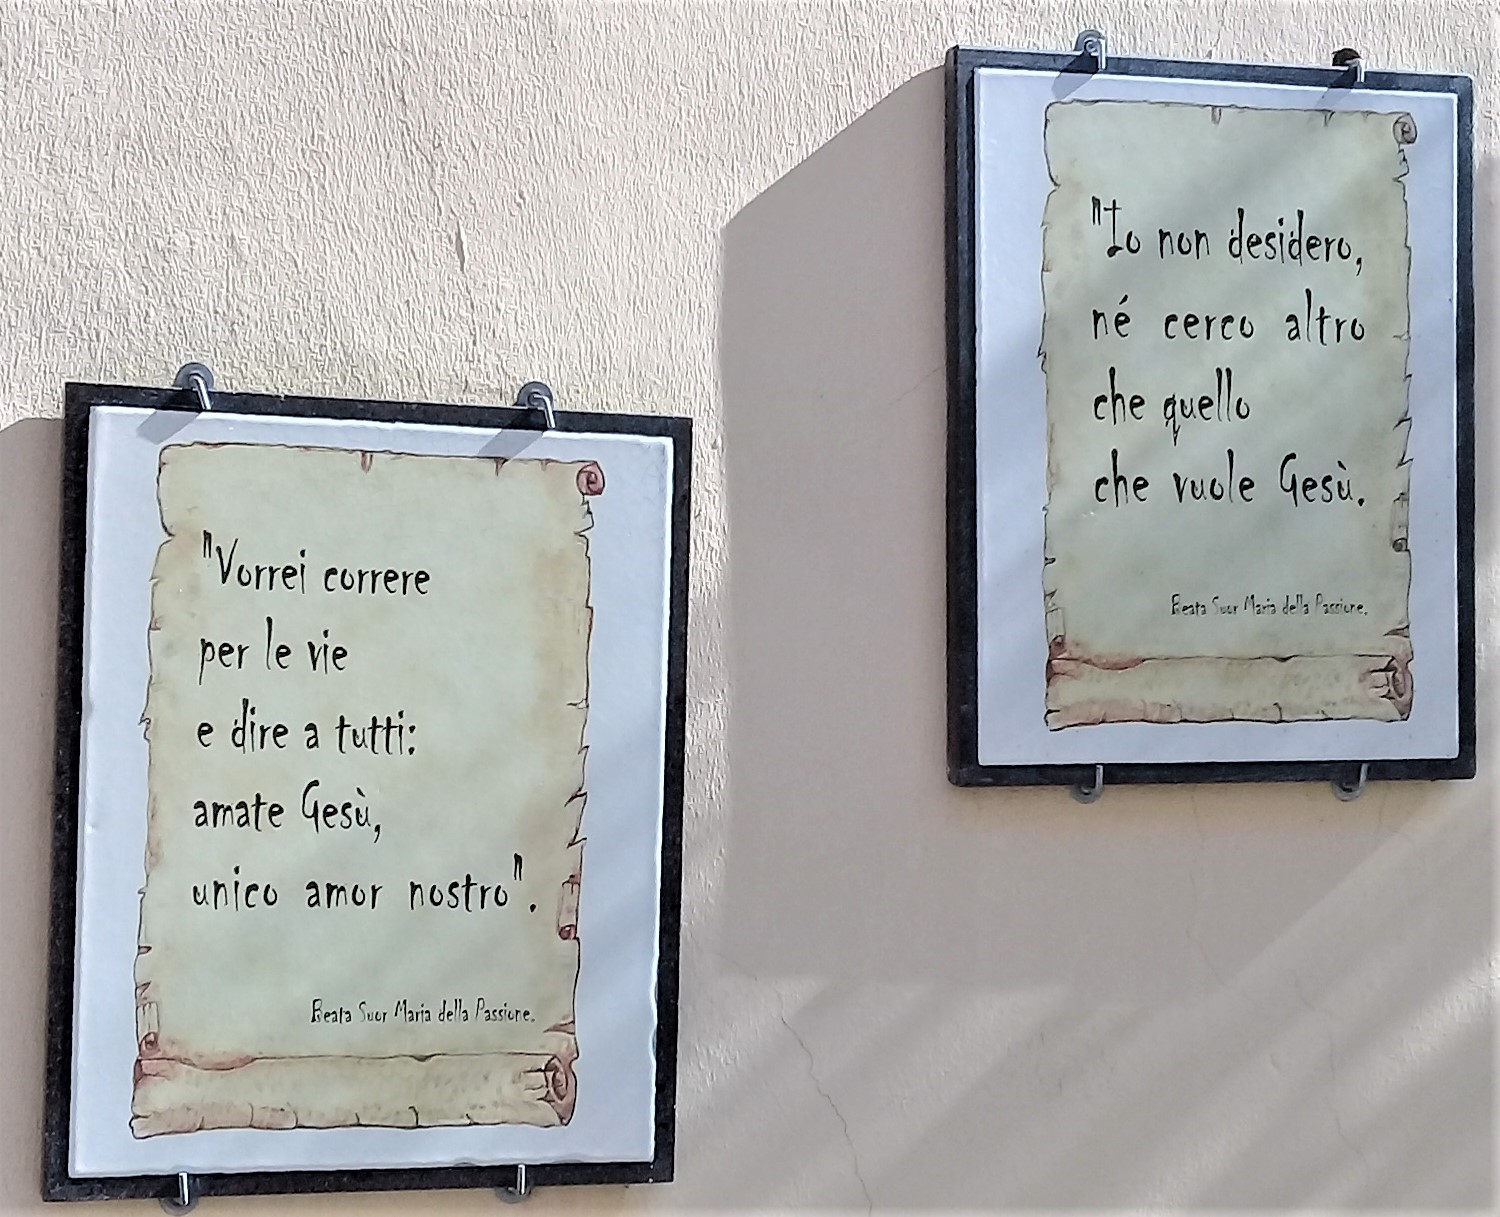 "Vorrei correre
per le vie
e dire a tutti:
amate Gesù,
unico amor nostro".
Beata Suor Maria della Passione.
"Io non desidero,
né cerco altro
che quello
che vuole Gesù.
Beata Suor Maria della Passione.